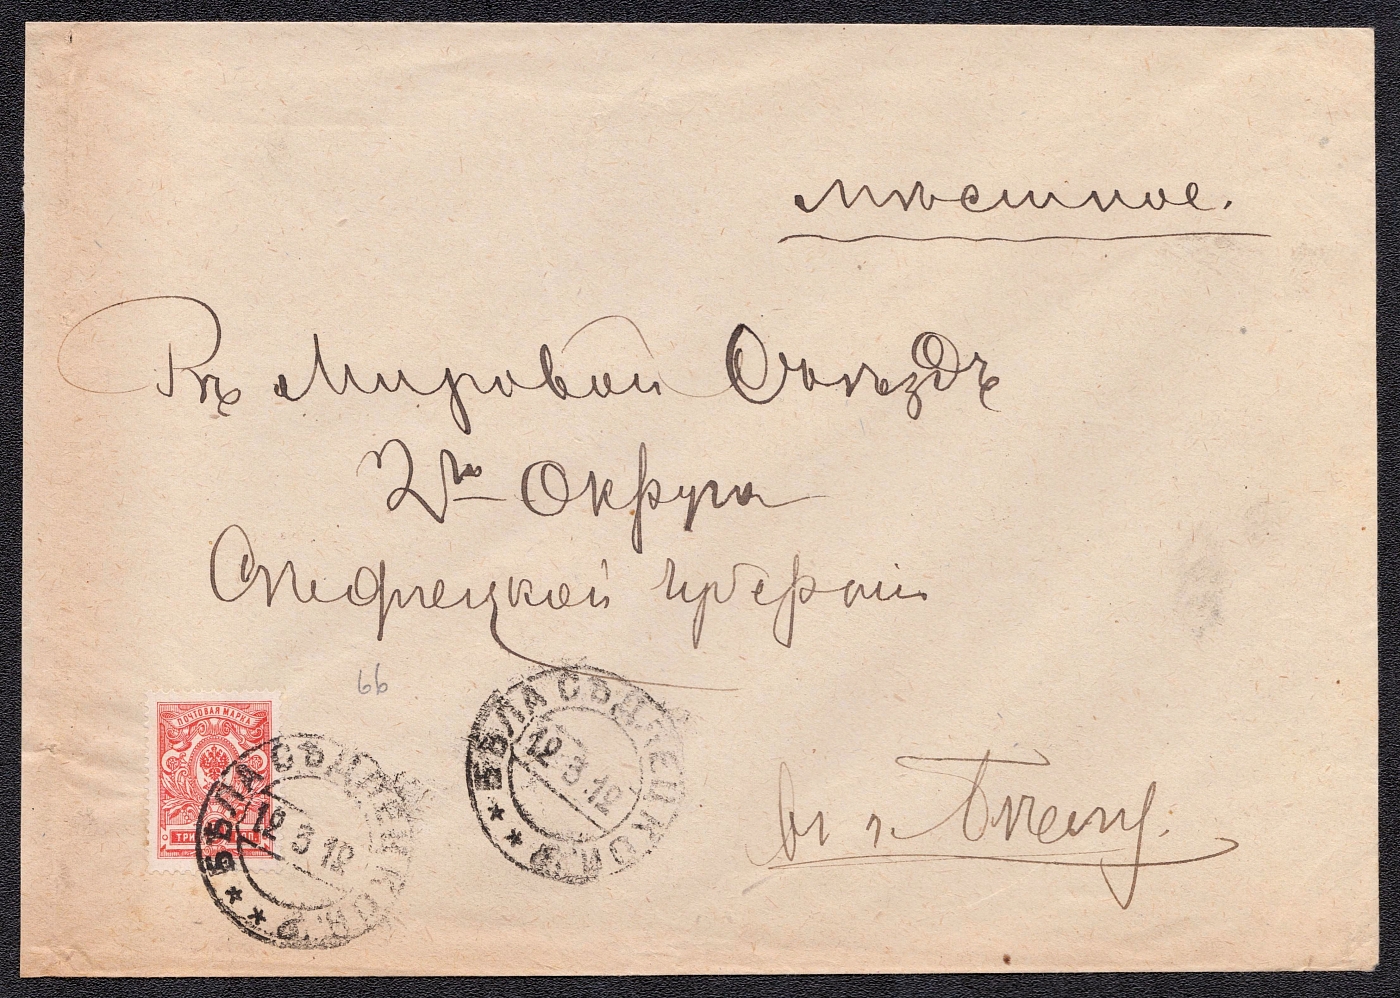 Мѣстное.
Въ Мировой Съѣздъ
2го Округа
Сѣдлецкой губерніи
66
ПОЧТОВАЯ МАРКА
БѢЛА СѢДЛЕЦКОЙ Г.
12.3.12
БѢЛА СѢДЛЕЦКОЙ Г.
12.3.12
въ г. Бѣлу.